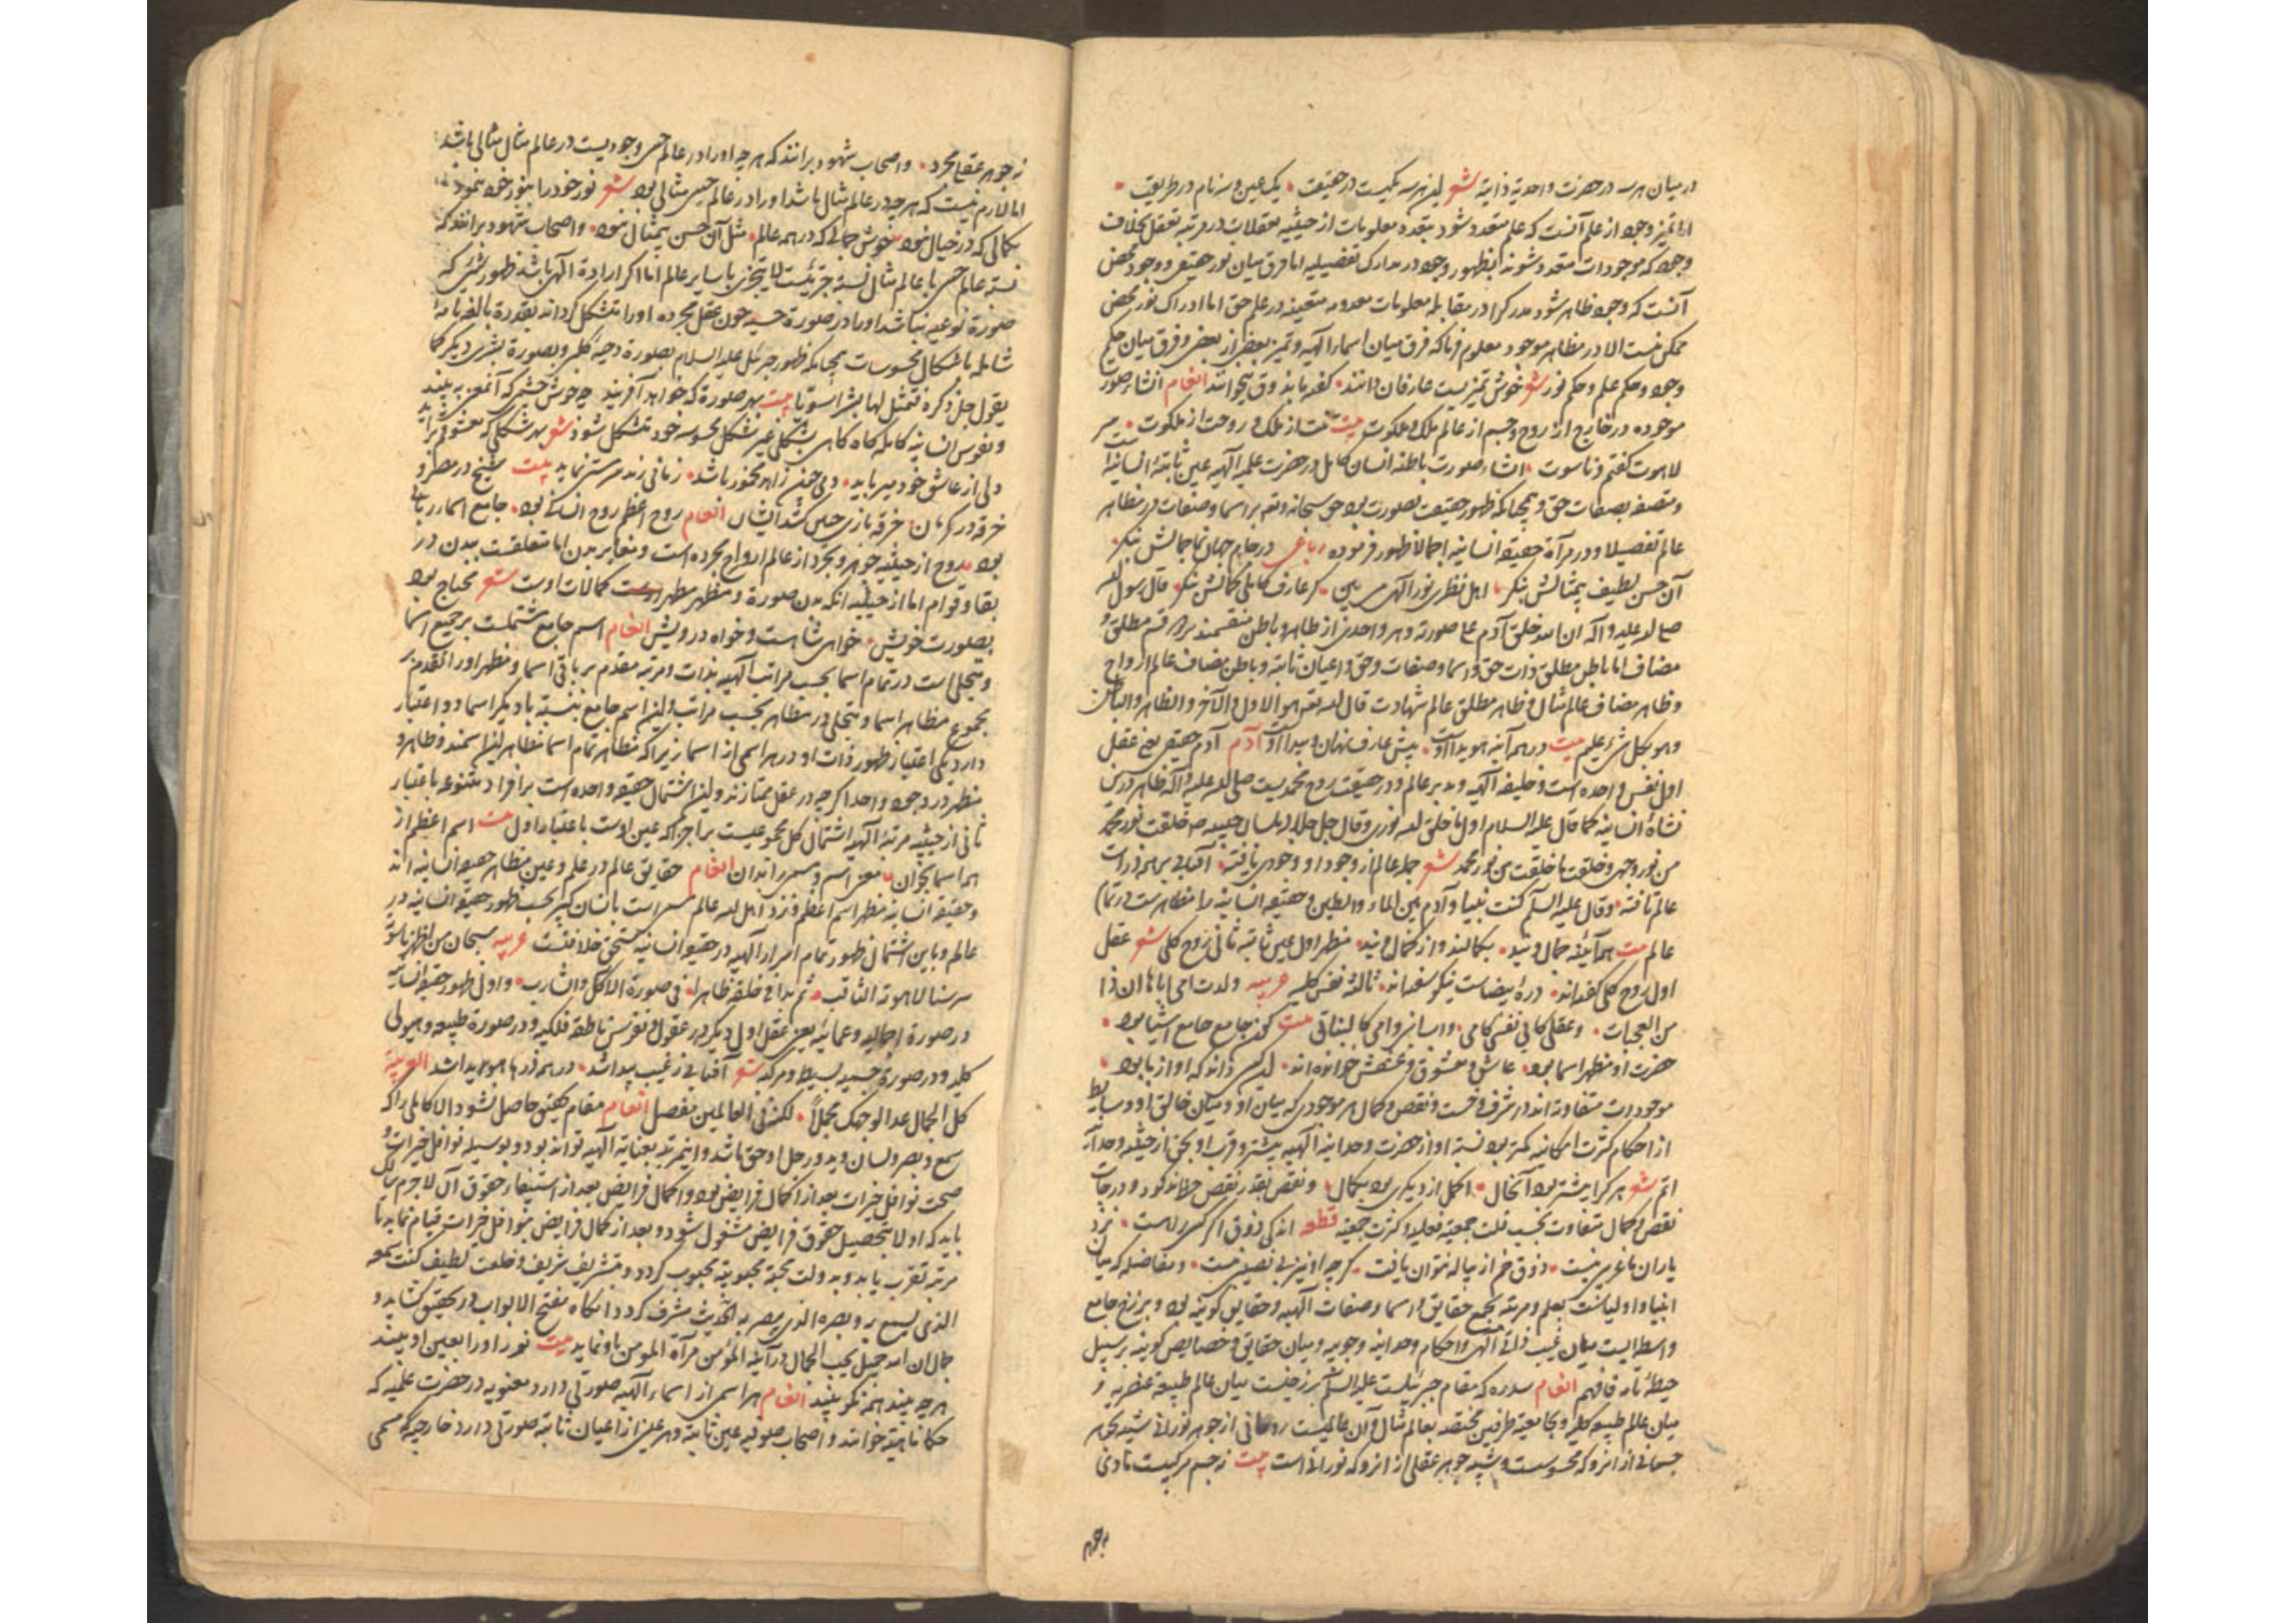 در میان هر سه در حضرت واحدیة ذاتیه شعر این هر سه یکیست در حقیقت یک عین و سه نام در طریقت
اما تمیز وجود از علم آنست که علم متعدد شود بتعدد معلومات از حیثیه تعقلات در مرتبه تعقل بخلاف
وجود که موجودات متعدد شوند بظهور وجود در مدارک تفصیلیه اما فرق میان نور حقیقی و وجود محض
آنست که وجود ظاهر شود مدرک را در مقابله معلومات معدومه متعینه در علم حق اما ادراک نور محض
ممکن نیست الا در مظاهر موجود معلوم فرما که فرق میان اسماء الهیه و تمیز بعضی از بعضی و فرق میان حکم
وجود و حکم علم و حکم نور شعر خوش تمیزیست عارفان دانند گفته ما بذوق میخوانند انعام انشاء صور
موجوده در خارج از روح و جسم از عالم ملک و ملکوت بیت تنت از ملک و روحت از ملکوت
لاهوت گفتم و ناسوت انشاء صورت باطنه انسان کامل در حضرت علمیه الهیه عین ثابته انسانیه
و متصفه بصفات حق و همچنانکه ظهور حقیقت بصورت بود حق سبحانه و تعالی بر اسما و صفات در مظاهر
عالم تفصیلا و در مرآة حقیقه انسانیه اجمالا ظهور فرموده رباعی در جام جهان نما جمالش بنگر
آن حسن لطیف بیمثالش بنگر اهل نظری نور الهی می بین گر عارف کاملی کمالش بنگر قال رسول الله
صلی الله علیه و آله ان الله خلق آدم علی صورته و هر واحدی از ظاهر و باطن منقسمند بر دو قسم مطلق و
مضاف اما باطن مطلق ذات حق و اسما و صفات و حق و اعیان ثابته و باطن مضاف عالم ارواح
و ظاهر مضاف عالم مثال و ظاهر مطلق عالم شهادت قال الله تعالی هو الاول و الآخر و الظاهر و الباطن
و هو بکل شیء علیم بیت در همه آینه هویدا اوست پیش عارف نهان و پیدا اوست آدم آدم حقیقی یعنی عقل
اول نفس واحده است و خلیفه الهیه و مدبر عالم و در حقیقت روح محمدیست صلی الله علیه و آله ظاهر در این
نشاة انسانیه کما قال علیه السلام اول ما خلق الله نوری و قال جل جلاله بلسان حبیبه صه خلقت نور محمد
من نور وجهی و خلقت ما خلقت من نور محمد شعر جمله عالم از وجود او وجودی یافته آفتابی بر همه ذرات
عالم تافته و قال علیه السلم کنت نبیا و آدم بین الماء و الطین و حقیقه انسانیه را مظاهرست در تمام
عالم بیت همه آئینه جمال ویند بکمالند و از کمال ویند مظهر اول عین ثابته ثانی روح کلی شعر عقل
اول روح کلی گفته اند دره بیضاست نیکو سفته اند ثالثه نفس کلیه عربیه ولدت امی اباها ان ذا
من العجبات و عقل کابی نفس کامی و ابنائی و امی کالبناتی بیت کون جامع جامع اشیا بود
حضرت او مظهر اسما بود عاشق و معشوق و عشقش خوانده اند این کسی داند که او از ما بود
موجودات متفاوته اند در شرف و خست و نقص و کمال هر موجودی که میان او و میان خالق او وسایط
از احکام کثرت امکانیه کمتر بود نسبة او از حضرت وحدانیة الهیه بیشتر و قرب او بحق از حیثیه وحدانیه
اتم شعر هر کرا بیشتر بود آنحال اکمل از دیگری بود بکمال و نقص بقدر نقص حظ مذکور و درجات
نقص و کمال متفاوت بحسب قلت جمعیة فعلیه و کثرت جمعیه قطعه اندکی ذوق اگر کسی راست نزد
یاران ما غریبی نیست ذوق خم از پیاله نتوان یافت گرچه او نیز بی نصیبی نیست و تفاضله که میان
انبیا و اولیاست بعلم و مرتبه بجمع حقایق و اسما و صفات الهیه و حقایق کونیه بود و برزخ جامع
واسطه ایست میان غیب ذاتی الهی و احکام وحدانیه وجوبیه و میان حقایق و خصایص کونیه بر سبیل
حیطه تامه فافهم انعام سدره که مقام جبرئیلست علیه السلم برزخیست میان عالم طبیعه عنصریه و
میان عالم طبیعه کلیه و بجامعیة طرفین مختصه بعالم مثال و آن عالمیست روحانی از جوهر نورانی شبیه بجوهر
جسمانی از آنرو که محسوسست و شبیه جوهر عقلی از آنرو که نورانی است بیت نه جسم مرکبیست مادی
نه جوهر عقلی مجرد و اصحاب شهود برانند که هر چه او را در عالم حس وجودیست در عالم مثال مثالی باشد
اما لازم نیست که هر چه در عالم مثال باشد او را در عالم حس مثالی بود شعر نور خود را بنور خود بنمود
بکمالی که در خیال نبود خوش جمالی که در همه عالم مثل آن حسن بیمثال نبود و اصحاب شهود برانند که
نسبة عالم حس با عالم مثال نسبة جزئیست لا یتجزی با سایر عالم اما اگر ارادة الهی باشد ظهور شیئی که
صورة نوعیه نباشد او را در صورة حسیه چون عقل مجرده او را متشکل گرداند بقدرة بالغه تامه
شامله باشکال محسوسات همچنانکه ظهور جبرئیل علیه السلام بصورة دحیه کلبی و بصورة بشری دیگر کما
یقول جل ذکره فتمثل لها بشرا سویا بیت بهر صورة که خواهد آفریند چه خوش چشمی که آنمعنی به بیند
و نفوس انسانیه کامله گاه گاهی بشکلی غیر شکل محسوسه خود متشکل شوند شعر بهر شکلی که معشوقی برآید
دلی از عاشق خود میرباید دمی چون زاهد مخمور باشد زمانی رند سرمستی نماید بیت شیخ در مصر و
خرقه در کرمان خرقه بازی چنین کشد ایشان انعام روح اعظم روح انسانی بود جامع اسماء ربانی
بود روح از حیثیه جوهر و تجرد از عالم ارواح مجرده است و مغایر بدن اما متعلقست ببدن در
بقا و قوام اما از حیثیه آنکه بدن صورة و مظهر کمالات اوست شعر محتاج بود
بصورت خویش خواهی شاهست و خواه درویش انعام اسم جامع مشتملست بر جمیع اسما
و متجلی است در تمام اسما بحسب مراتب الهیه بذات و مرتبه مقدم بر باقی اسما و مظهر او را تقدم بر
مجموع مظاهر اسما و متجلی در مظاهر بحسب مراتب و این اسم جامع بنسبة با دیگر اسما دو اعتبار
دارد یکی اعتبار ظهور ذات او در هر اسمی از اسما زیرا که مظاهر تمام اسما مظاهر این اسمند و ظاهر و
مظهر در وجود واحد اگرچه در عقل ممتازند و این اشتمال حقیقه واحده است بر افراد متنوعه باعتبار
ثانی از حیثیه مرتبه الهیه اشتمال کل مجموعیست بر اجزا که عین اوست باعتبار اول بیت اسم اعظم از
همه اسما بخوان معنی اسم و مسمی را بدان انعام حقایق عالم در علم و عین مظاهر حقیقه انسانیه اند
و حقیقه انسانیه مظهر اسم اعظم و نزد اهل الله عالم مسمی است بانسان کبیر بحسب ظهور حقیقه انسانیه در
عالم و باین اشتمال ظهور تمام اسرار الهیه در حقیقه انسانیه مستحق خلافتست عربیه سبحان من اظهر ناسوته
سر سنا لاهوته الثاقب ثم بدا فی خلقه ظاهرا فی صورة الاکل و الشارب و اول ظهور حقیقه انسانیه
در صورة اجمالیه و عمائیه یعنی عقل اول دیگر در عقول و نفوس ناطقه فلکیه و در صورة طبیعه و هیولی
کلیه و در صورتهای جسیمیه بسیط و مرکبه شعر آفتابی ز غیب پیدا شد در همه ذرها هویدا شد العربیة
کل الجمال غدا لوجهک مجملا لکنه فی العالمین مفصل انعام مقام تحقیق حاصل نشود الا کاملی را که
سمع و بصر و لسان و ید و رجل او حق باشد و این مرتبه بعنایة الهیه تواند بود و بوسیله نوافل خیرات و
صحت نوافل خیرات بعد از اکمال فرایض بود و اکمال فرایض بعد از استیفاء حقوق آن لاجرم سالک
باید که اولا بتحصیل حقوق فرایض مشغول شود و بعد از کمال فرایض بنوافل خیرات قیام نماید تا
مرتبه تقرب یابد و بدولت محبة محبوبیه محبوب گردد و بتشریف شریف و خلعت لطیف کنت سمعه
الذی یسمع به و بصره الذی یبصر به الحدیث مشرف گردد آنگاه مفتح الابواب در تحقیق گشاید و
جمال ان الله جمیل یحب الجمال در آئنه المؤمن مرآة المومن باو نماید بیت نور او را بعین او بیند
هر چه بیند همه نکو بیند انعام هر اسمی از اسماء الهیه صورتی دارد معنویه در حضرت علمیه که
حکما ماهیة خوانند و اصحاب صوفیه عین ثابته و هر عینی از اعیان ثابته صورتی دارد خارجیه که مسمی